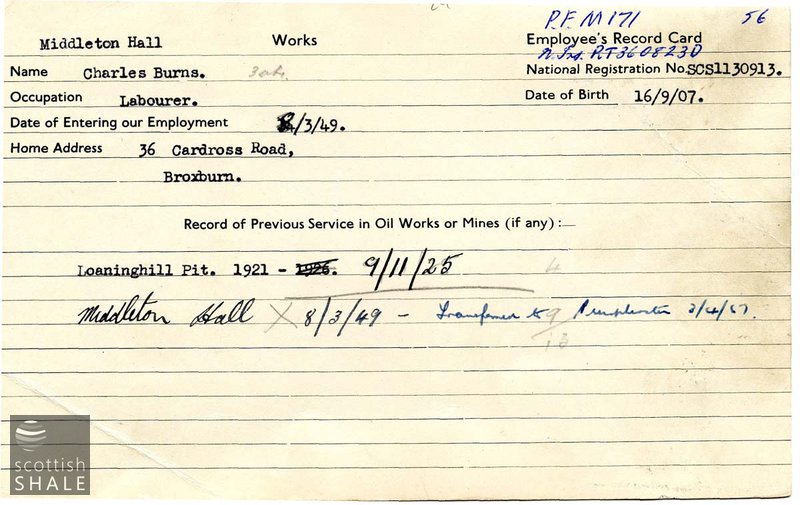 P.F. M171 56
Middleton Hall Works Employee's Record Card
N. Ins. RT360823D
Name Charles Burns. National Registration No. SCS1130913.
Occupation Labourer. Date of Birth 16/9/07.
Date of Entering our Employment 8/3/49.
Home Address 36 Cardross Road,
Broxburn.
Record of Previous Service in Oil Works or Mines (if any):—
Loaninghill Pit. 1921 - 1926. 9/11/25 4
Middleton Hall X 8/3/49 - Transferred to 9 Pumpherston 2/4/57.
13
scottish
SHALE